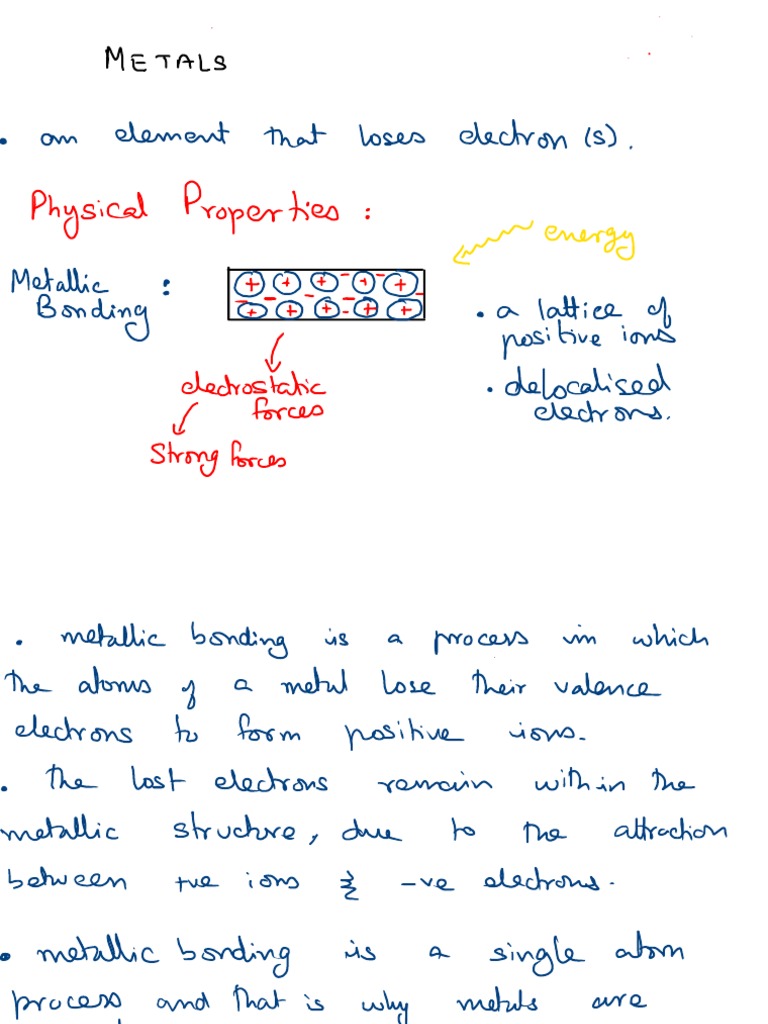 METALS
• an element that loses electron(s).
Physical Properties :
energy
Metallic Bonding :
+ + + + +
+ + + + +
• a lattice of
positive ions
• delocalised
electrons.
electrostatic
forces
Strong forces
• metallic bonding is a process in which
the atoms of a metal lose their valence
electrons to form positive ions.
• the lost electrons remain within the
metallic structure, due to the attraction
between +ve ions & -ve electrons.
• metallic bonding is a single atom
process and that is why metals are